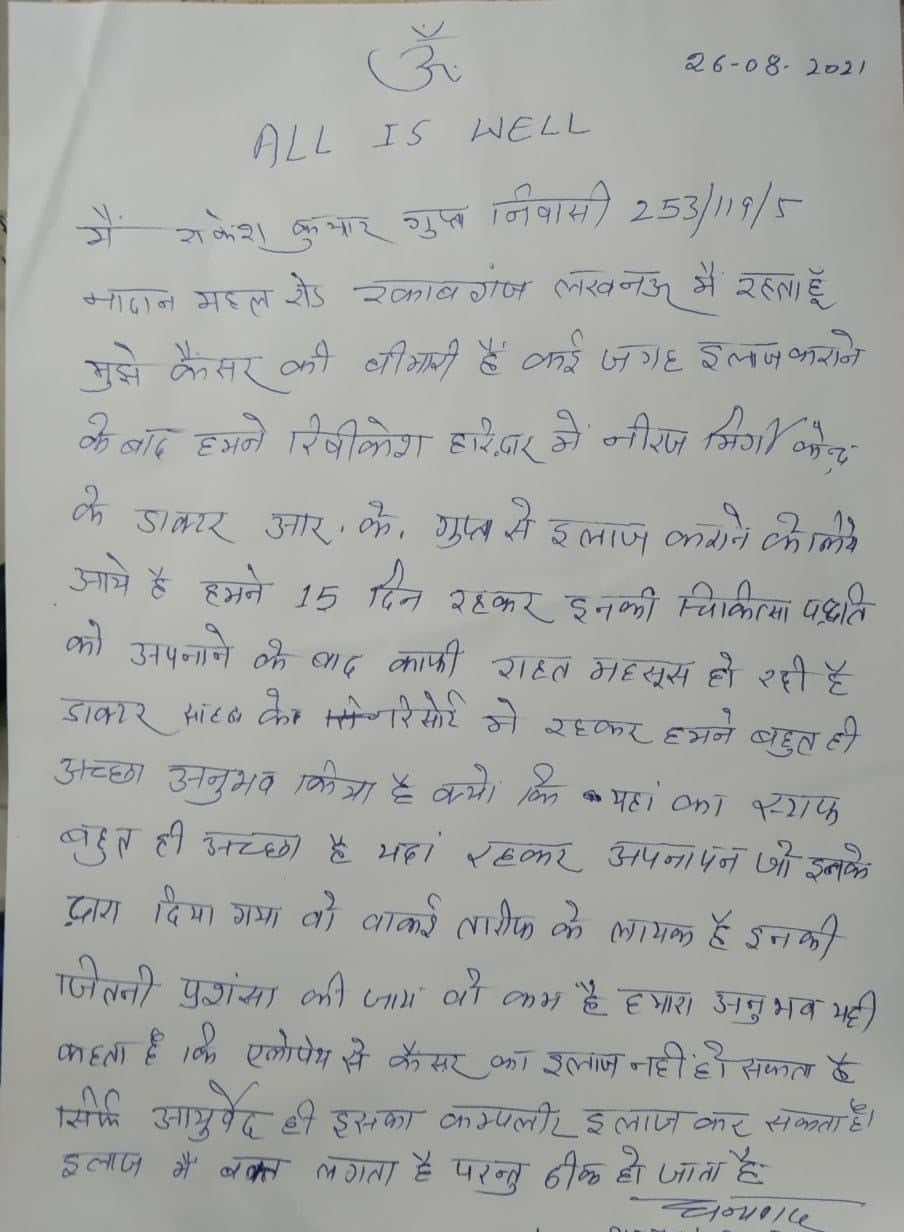 ॐ
26-08-2021
ALL IS WELL
मैं राकेश कुमार गुप्ता निवासी 253/119/5
नादान महल रोड रकाबगंज लखनऊ में रहता हूँ
मुझे कैंसर की बीमारी है कई जगह इलाज कराने
के बाद हमने रिषीकेश हरिद्वार में नीरज मिर्गी केन्द्र
के डाक्टर आर. के. गुप्ता से इलाज कराने के लिये
आये है हमने 15 दिन रहकर इनकी चिकित्सा पद्धति
को अपनाने के बाद काफी राहत महसूस हो रही है
डाक्टर साहब के रिसोर्ट मे रहकर हमने बहुत ही
अच्छा अनुभव किया है क्यों कि यहां का स्टाफ
बहुत ही अच्छा है यहां रहकर अपनापन जो इनके
द्वारा दिया गया वो वाकई तारीफ के लायक है इनकी
जितनी प्रशंसा की जाय वो कम है हमारा अनुभव यही
कहता है कि एलोपेथ से कैंसर का इलाज नहीं हो सकता है
सिर्फ आयुर्वेद ही इसका कम्पलीट इलाज कर सकता है।
इलाज में वक्त लगता है परन्तु ठीक हो जाता है
धन्यवाद